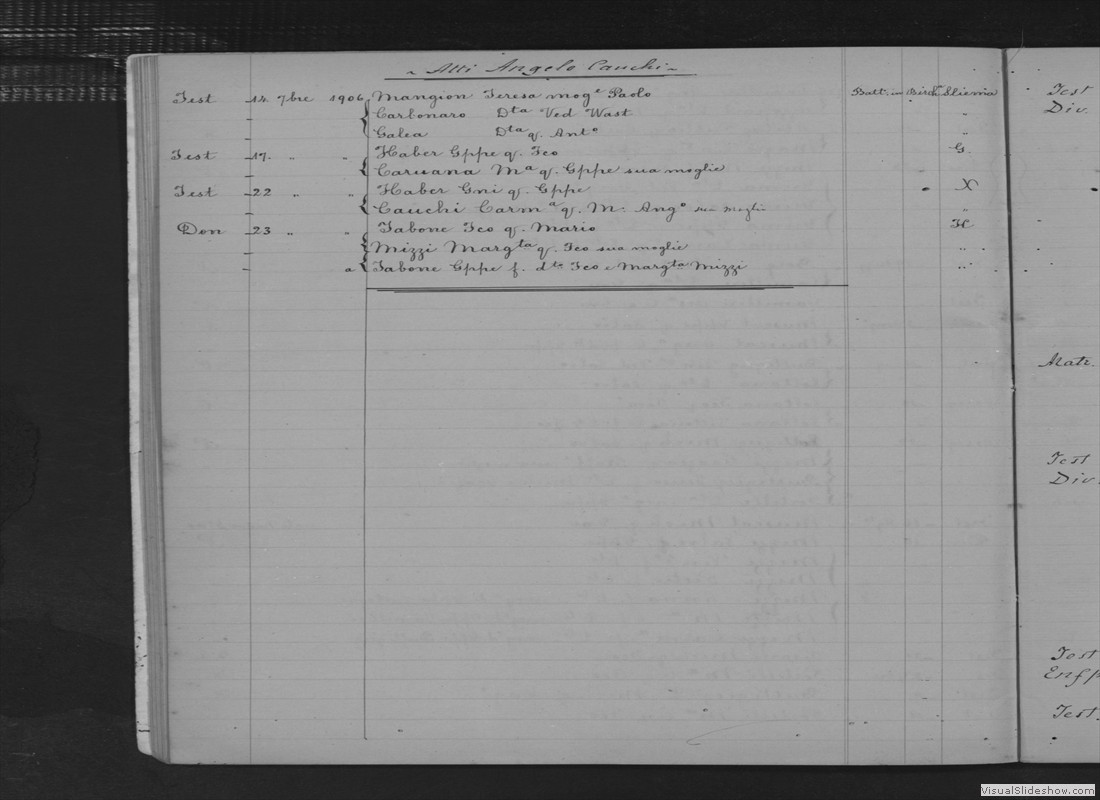 Atti Angelo Cauchi
Test 14 7bre 1906 Mangion Teresa mogᵉ Paolo Batt. in Birchᵃ Sliema
" Carbonaro Dᵗᵃ Ved Wast "
" Galea Dᵗᵃ q. Antᵒ "
Test 17 " " Haber Gppe q. Feo G.
" Caruana Mᵃ q. Gppe sua moglie "
Test 22 " " Haber Gni q. Gppe X
" Cauchi Carmᵃ q. M. Angᵒ sua moglie "
Don 23 " " Tabone Feo q. Mario H
" Mizzi Margᵗᵃ q. Feo sua moglie "
" a Tabone Gppe f. dᵗᵒ Feo e Margᵗᵃ Mizzi "
Test
Div.
Matr.
Test
Div.
Test
Enfi
Test.
VisualSlideshow.com